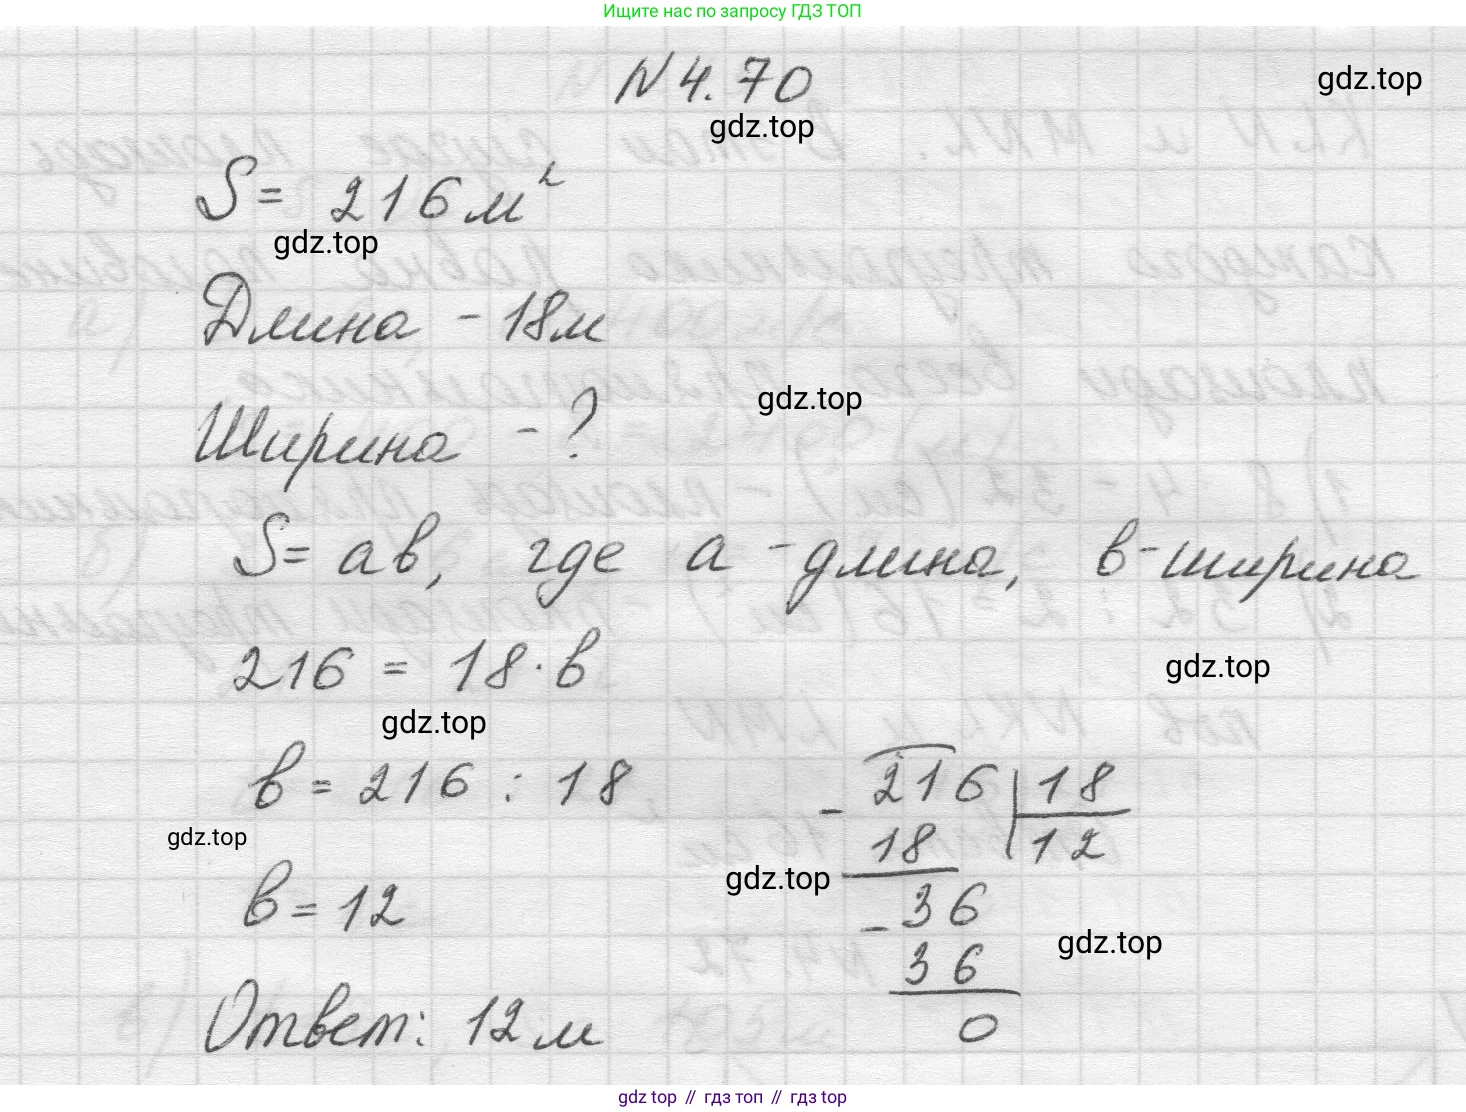 Ищите нас по запросу ГДЗ ТОП
N 4.70
gdz.top
gdz.top
S = 216 м²
gdz.top
Длина - 18м
gdz.top
Ширина - ?
S = ав, где а - длина, в - ширина
216 = 18 · в
gdz.top
gdz.top
в = 216 : 18
216 | 18
gdz.top
- 18 | 12
gdz.top
в = 12
- 36
gdz.top
36
0
Ответ: 12 м
gdz top // гдз топ // гдз top